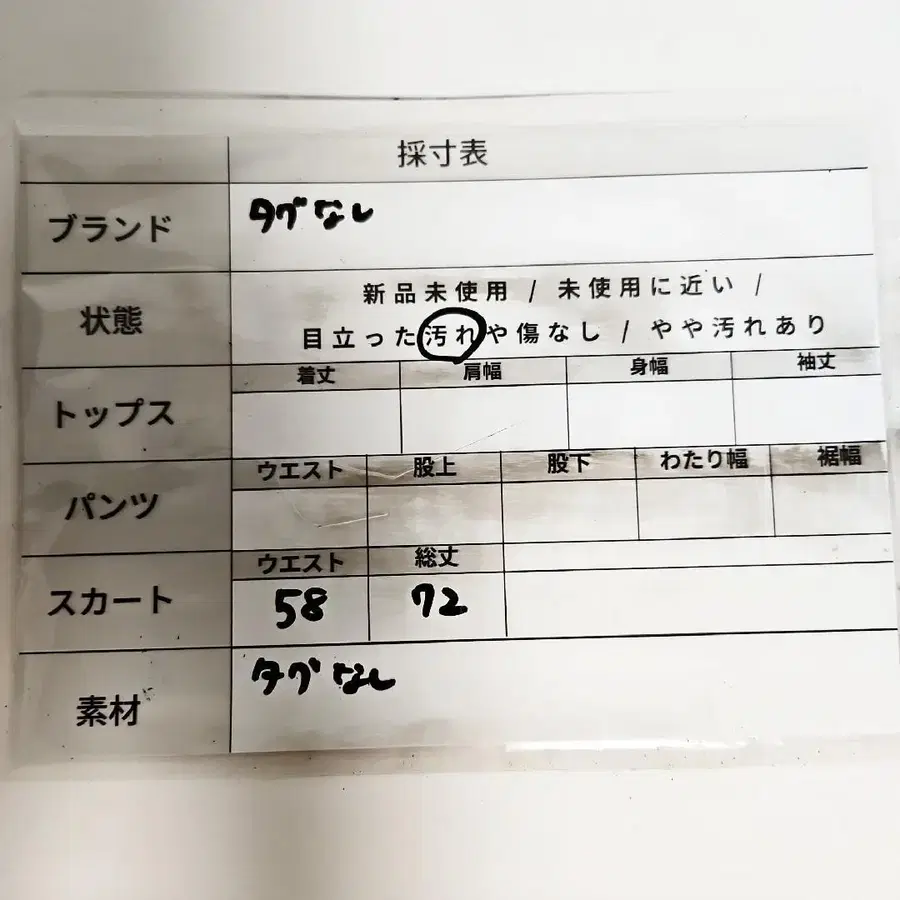 採寸表
ブランド タグなし
状態 新品未使用 / 未使用に近い /
目立った汚れや傷なし / やや汚れあり
トップス 着丈 肩幅 身幅 袖丈
パンツ ウエスト 股上 股下 わたり幅 裾幅
スカート ウエスト 総丈
58 72
素材 タグなし